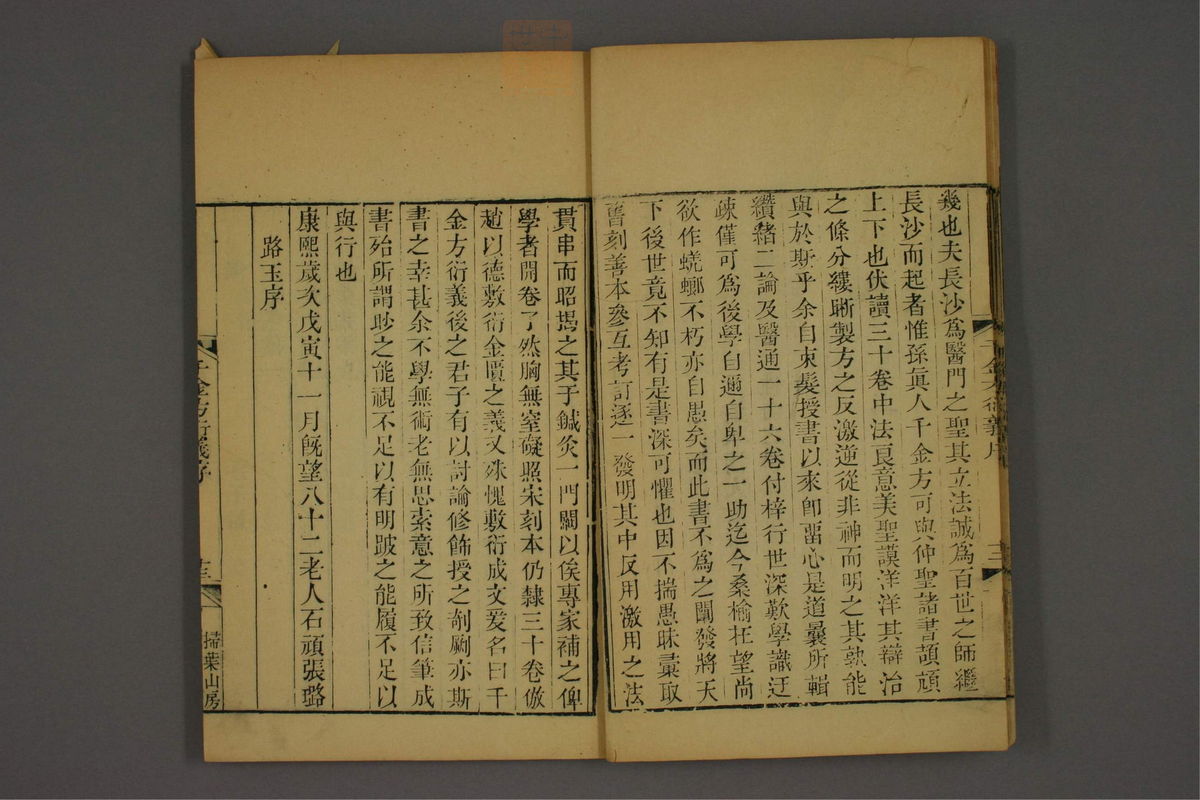 幾也夫長沙爲醫門之聖其立法誠爲百世之師繼
長沙而起者惟孫眞人千金方可與仲聖諸書頡頏
上下也伏讀三十卷中法良意美聖謨洋洋其辯治
之條分縷晰製方之反激逆從非神而明之其孰能
與於斯乎余自束髮授書以來卽畱心是道曩所輯
纘緒二論及醫通一十六卷付梓行世深歎學識迂
疎僅可爲後學自邇自卑之一助迄今桑榆在望尚
欲作蟯螂不朽亦自愚矣而此書不爲之闡發將天
下後世竟不知有是書深可懼也因不揣愚昧彚取
舊刻善本參互考訂逐一發明其中反用激用之法
貫串而昭揭之其于鍼灸一門闕以俟專家補之俾
學者開卷了然胸無窒礙照宋刻本仍隸三十卷倣
趙以德敷衍金匱之義又殊愧敷衍成文爰名曰千
金方衍義後之君子有以討論修飾授之剞劂亦斯
書之幸甚余不學無術老無思索意之所致信筆成
書殆所謂眇之能視不足以有明跛之能履不足以
與行也
康熙歲次戊寅十一月旣望八十二老人石頑張璐
路玉序
千金方衍義序
十三
掃葉山房